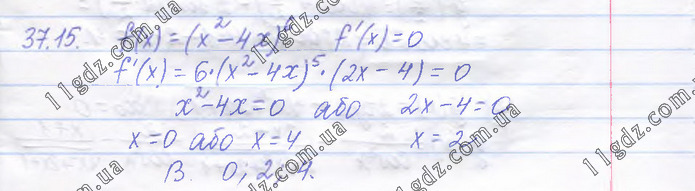 37.15. f(x) = (x² - 4x)⁶ f'(x) = 0
f'(x) = 6·(x² - 4x)⁵·(2x - 4) = 0
x² - 4x = 0 або 2x - 4 = 0
x = 0 або x = 4 x = 2
В. 0; 2; 4.
11gdz.com.ua
11gdz.com.ua
11gdz.com.ua
11gdz.com.ua
11gdz.com.ua